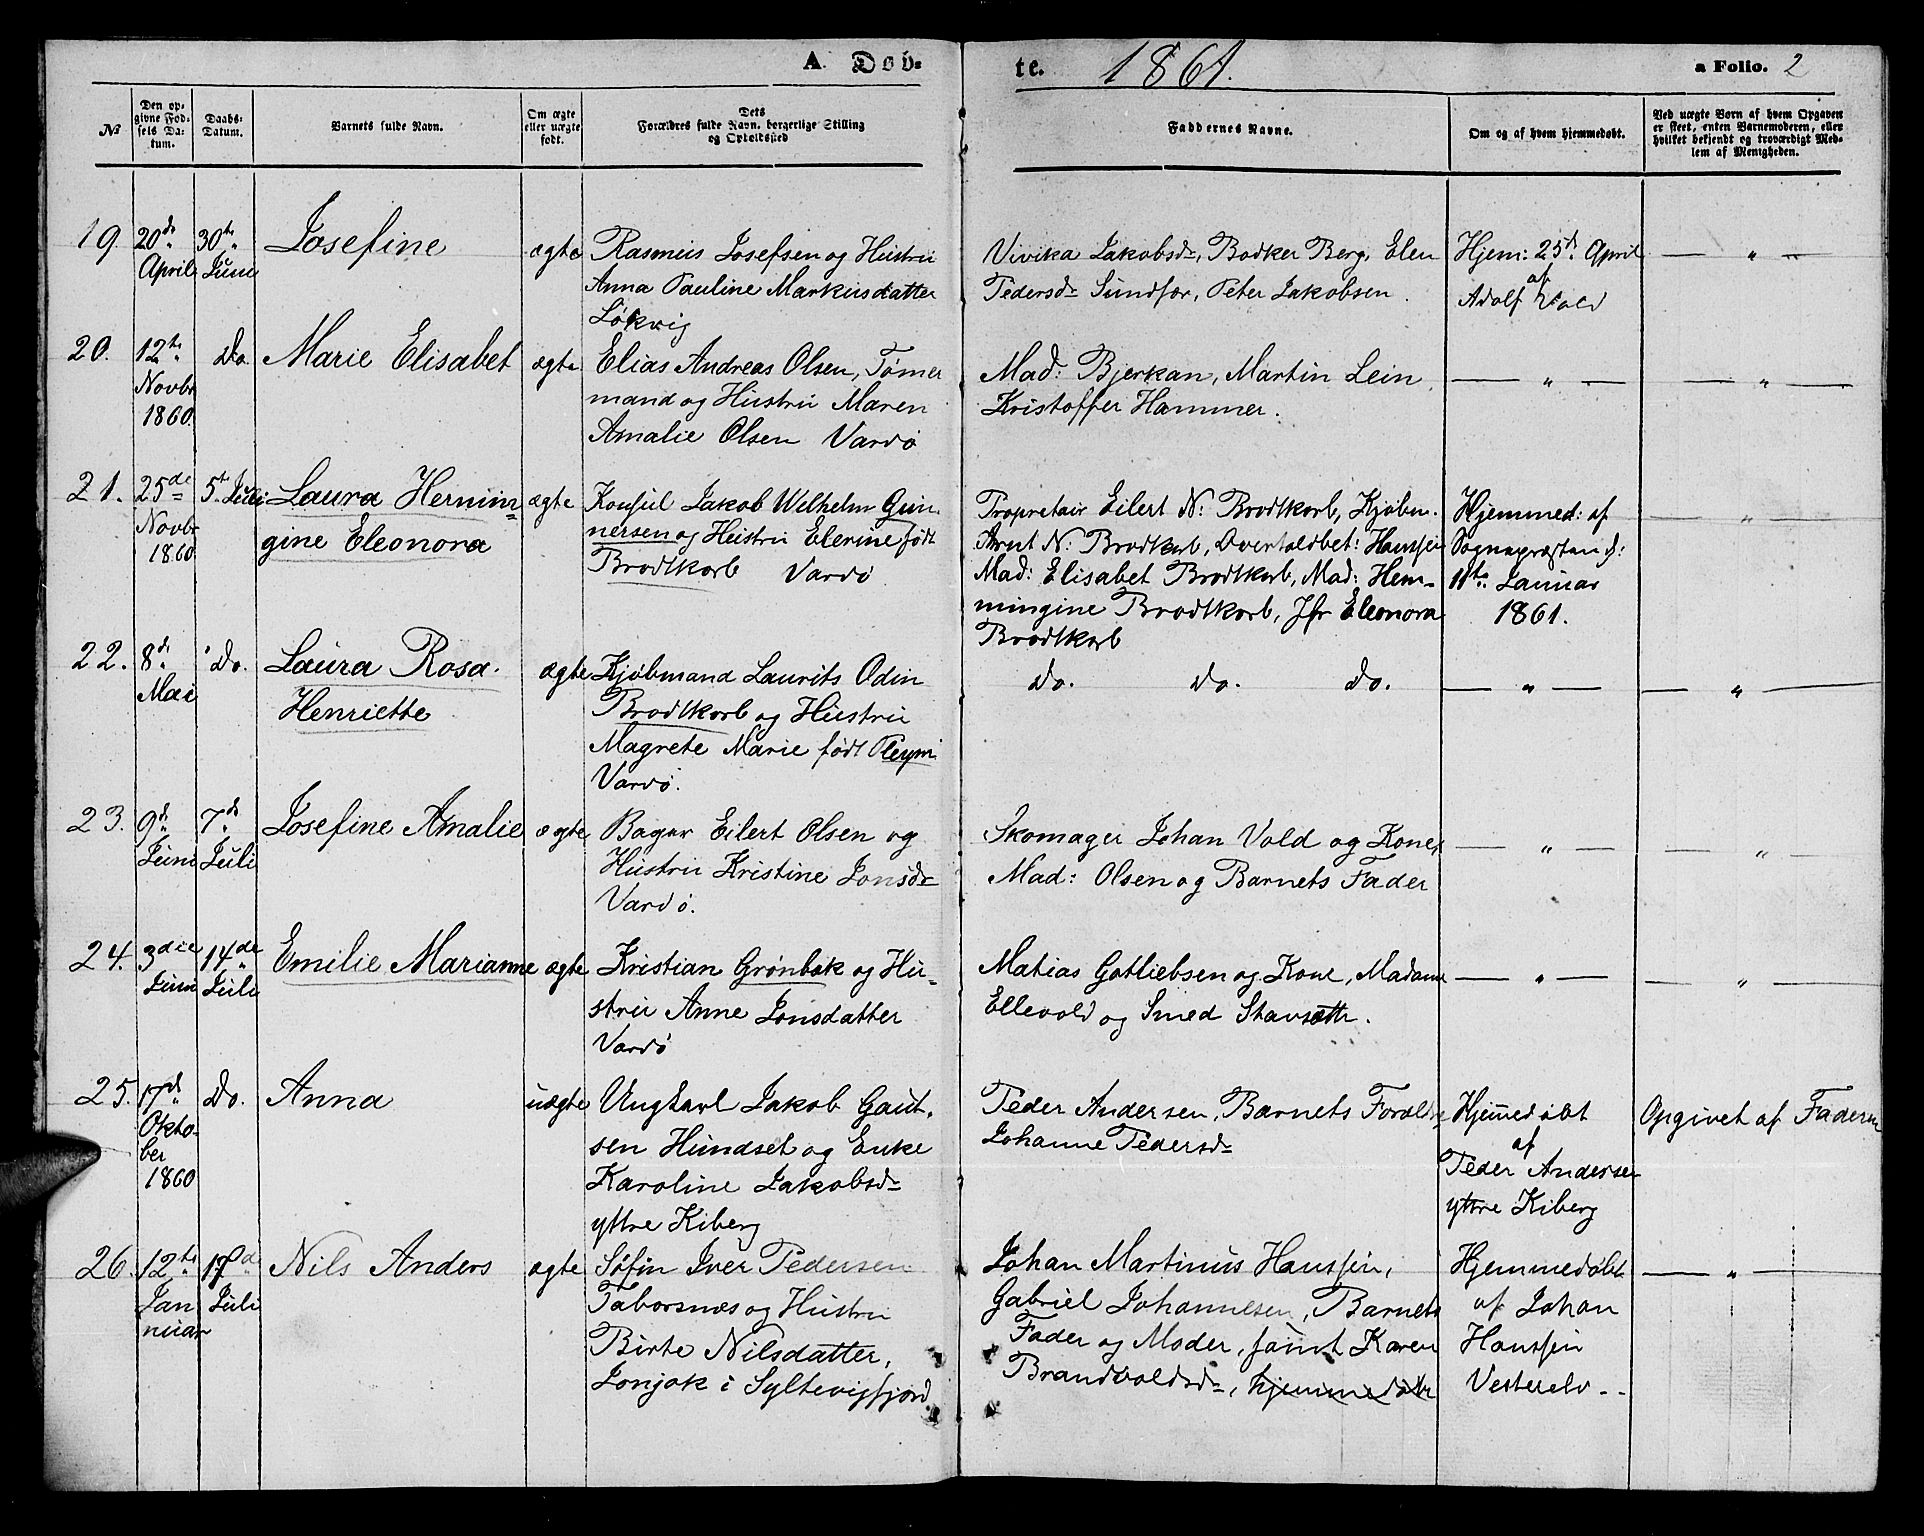 A Døb-
te.
1861.
a Folio. 2
№
Den op-
givne Fød-
sels Da-
tum.
Daabs-
Datum.
Barnets fulde Navn.
Om ægte
eller uægte
født.
Dets
Forældres fulde Navn, borgerlige Stilling
og Opholdssted
Faddernes Navne.
Om og af hvem hjemmedøbt.
Ved uægte Børn af hvem Opgaven
er skeet, enten Barnemoderen, eller
hvilket bekjendt og troværdigt Med-
lem af Menigheden.
19. 20de April 30te Juni Josefine ægte
Rasmus Josefsen og Hustru
Anna Pauline Markusdatter
Løkvig
Vivika Jakobsdr, Bødker Berg, Elen
Pedersdr Sundfær, Peter Jakobsen.
Hjem: 25de April
af
Adolf Vold
— " —
20. 12te Novbr 1860 Do. Marie Elisabet ægte
Elias Andreas Olsen, Tømer
mand og Hustru Maren
Amalie Olsen Vardø
Mad: Bjerkan, Martin Lein,
Kristoffer Hammer.
— " —
— " —
21. 25de Novbr 1860 5te Juli Laura Hermin=
gine Eleonora
ægte
Konsul Jakob Welhelm Gun-
nersen og Hustru Elerine født
Brodtkorb Vardø
Propretair Eilert N: Brodtkorb, Kjøbm.
Arnt N: Brodtkorb, Overtoldbet: Hanssen
Mad: Elisabet Brodtkorb, Mad: Hem-
mingine Brodtkorb, Jfr Eleonora
Brodtkorb
Hjemmed: af
Sognepræsten d:
11te Januar
1861.
— " —
22. 8de Mai Do. Laura Rosa
Henriette
ægte
Kjøbmand Laurits Odin
Brodtkorb og Hustru
Magrete Marie født Pleym
Vardø.
Do. Do. Do.
— " —
— " —
23. 9de Juni 7de Juli Josefine Amalie ægte
Bager Eilert Olsen og
Hustru Kristine Jonsdr
Vardø.
Skomager Johan Vold og Kone,
Mad: Olsen og Barnets Fader
— " —
— " —
24. 3die Juni 14de Juli Emilie Marianne ægte
Kristian Grønbæk og Hu-
stru Anne Jonsdatter
Vardø
Matias Gotliebsen og Kone, Madame
Ellevold og Smed Stavsætr.
— " —
— " —
25. 17de Oktober 1860 Do. Anna uægte
Ungkarl Jakob Gaut-
sen Hundset og Enke
Karoline Jakobsdr
yttre Kiberg
Peder Andersen, Barnets Foreldre,
Johanne Pedersdr
Hjemedøbt
af
Peder Andersen
yttre Kiberg
Opgivet af Faderen
26. 12te Januar 17de Juli Nils Anders ægte
Søfin Iver Pedersen
Taborsnæs og Hustru
Birte Nilsdatter,
Jonjok i Syltevigfjord
Johan Martinus Hanssen,
Gabriel Johannesen, Barnets
Fader og Moder, samt Karen
Brandvoldsdr, hjemmedøbt
Hjemmedøbt
af Johan
Hanssen
Vesterelv --
— " —